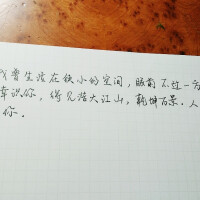 我曾生活在狭小的空间，眼前不过一方
幸识你，得见浩大江山，乾坤百景．人
你．